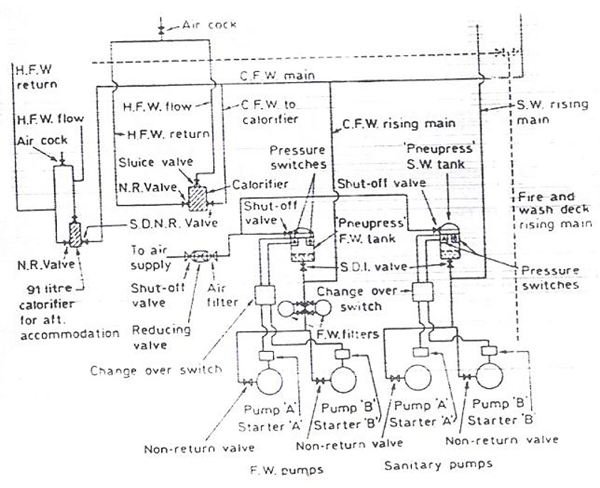 Air cock
H.F.W
return
C.F.W main
H.F.W. flow
H.F.W. flow
C.F.W. to
calorifier
S.W. rising
main
Air cock
H.F.W. return
C.F.W. rising main
Sluice valve
Pressure
switches
'Pneupress'
S.W. tank
N.R. Valve
Calorifier
Shut-off valve
Fire and
wash deck
rising main
S.D.N.R. Valve
Shut-off
valve
'Pneupress'
F.W. tank
To air
supply
N.R. Valve
S.D.I. valve
Pressure
switches
91 litre
calorifier
for aft.
accommodation
Shut-off
valve
Air
filter
Change over
switch
Reducing
valve
F.W. filters
Change over switch
Pump 'A'
Starter 'A'
Pump 'B'
Starter 'B'
Pump 'A'
Starter 'A'
Pump 'B'
Starter 'B'
Non-return valve
Non-return valve
Non-return valve
F.W. pumps
Sanitary pumps